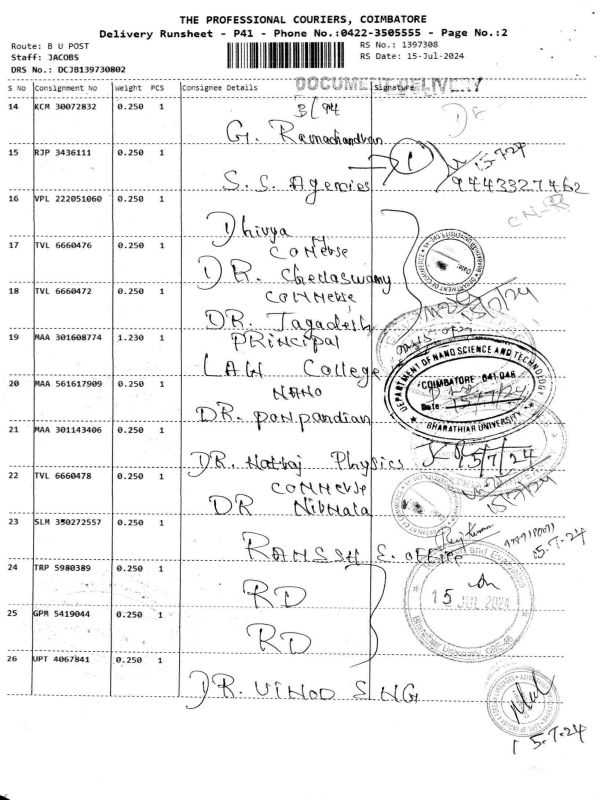 THE PROFESSIONAL COURIERS, COIMBATORE
Delivery Runsheet - P41 - Phone No.:0422-3505555 - Page No.:2
Route: B U POST
RS No.: 1397308
Staff: JACOBS
RS Date: 15-Jul-2024
DRS No.: DCJB139730802
DOCUMENT DELIVERY
S No Consignment No Weight PCS Consignee Details Signature
14 KCM 30072832 0.250 1
3/94
G. Ramachandran
15 RJP 3436111 0.250 1
1
15-7-24
S.S. Agencies
9443327462
16 VPL 222051060 0.250 1
Dhivya
17 TVL 6660476 0.250 1
COMMERSE
DR. Chedaswamy
18 TVL 6660472 0.250 1
COMMERSE
15/7/24
DR. Jagadesh
19 MAA 301608774 1.230 1
PRINCIPAL
LAW College
DEPARTMENT OF NANO SCIENCE AND TECHNOLOGY
COIMBATORE 641 046
Date: 15/7/24
BHARATHIAR UNIVERSITY
20 MAA 561617909 0.250 1
NANO
DR. PONPANDIAN
21 MAA 301143406 0.250 1
DR. Nattaj Physics
15/7/24
22 TVL 6660478 0.250 1
COMMERSE
15/7/24
DR Nirmala
23 SLM 350272557 0.250 1
15-7-24
24 TRP 5980389 0.250 1
RD
15 JUL 2024
25 GPM 5419044 0.250 1
RD
26 UPT 4067841 0.250 1
DR. VINOD SNG
15-7-24